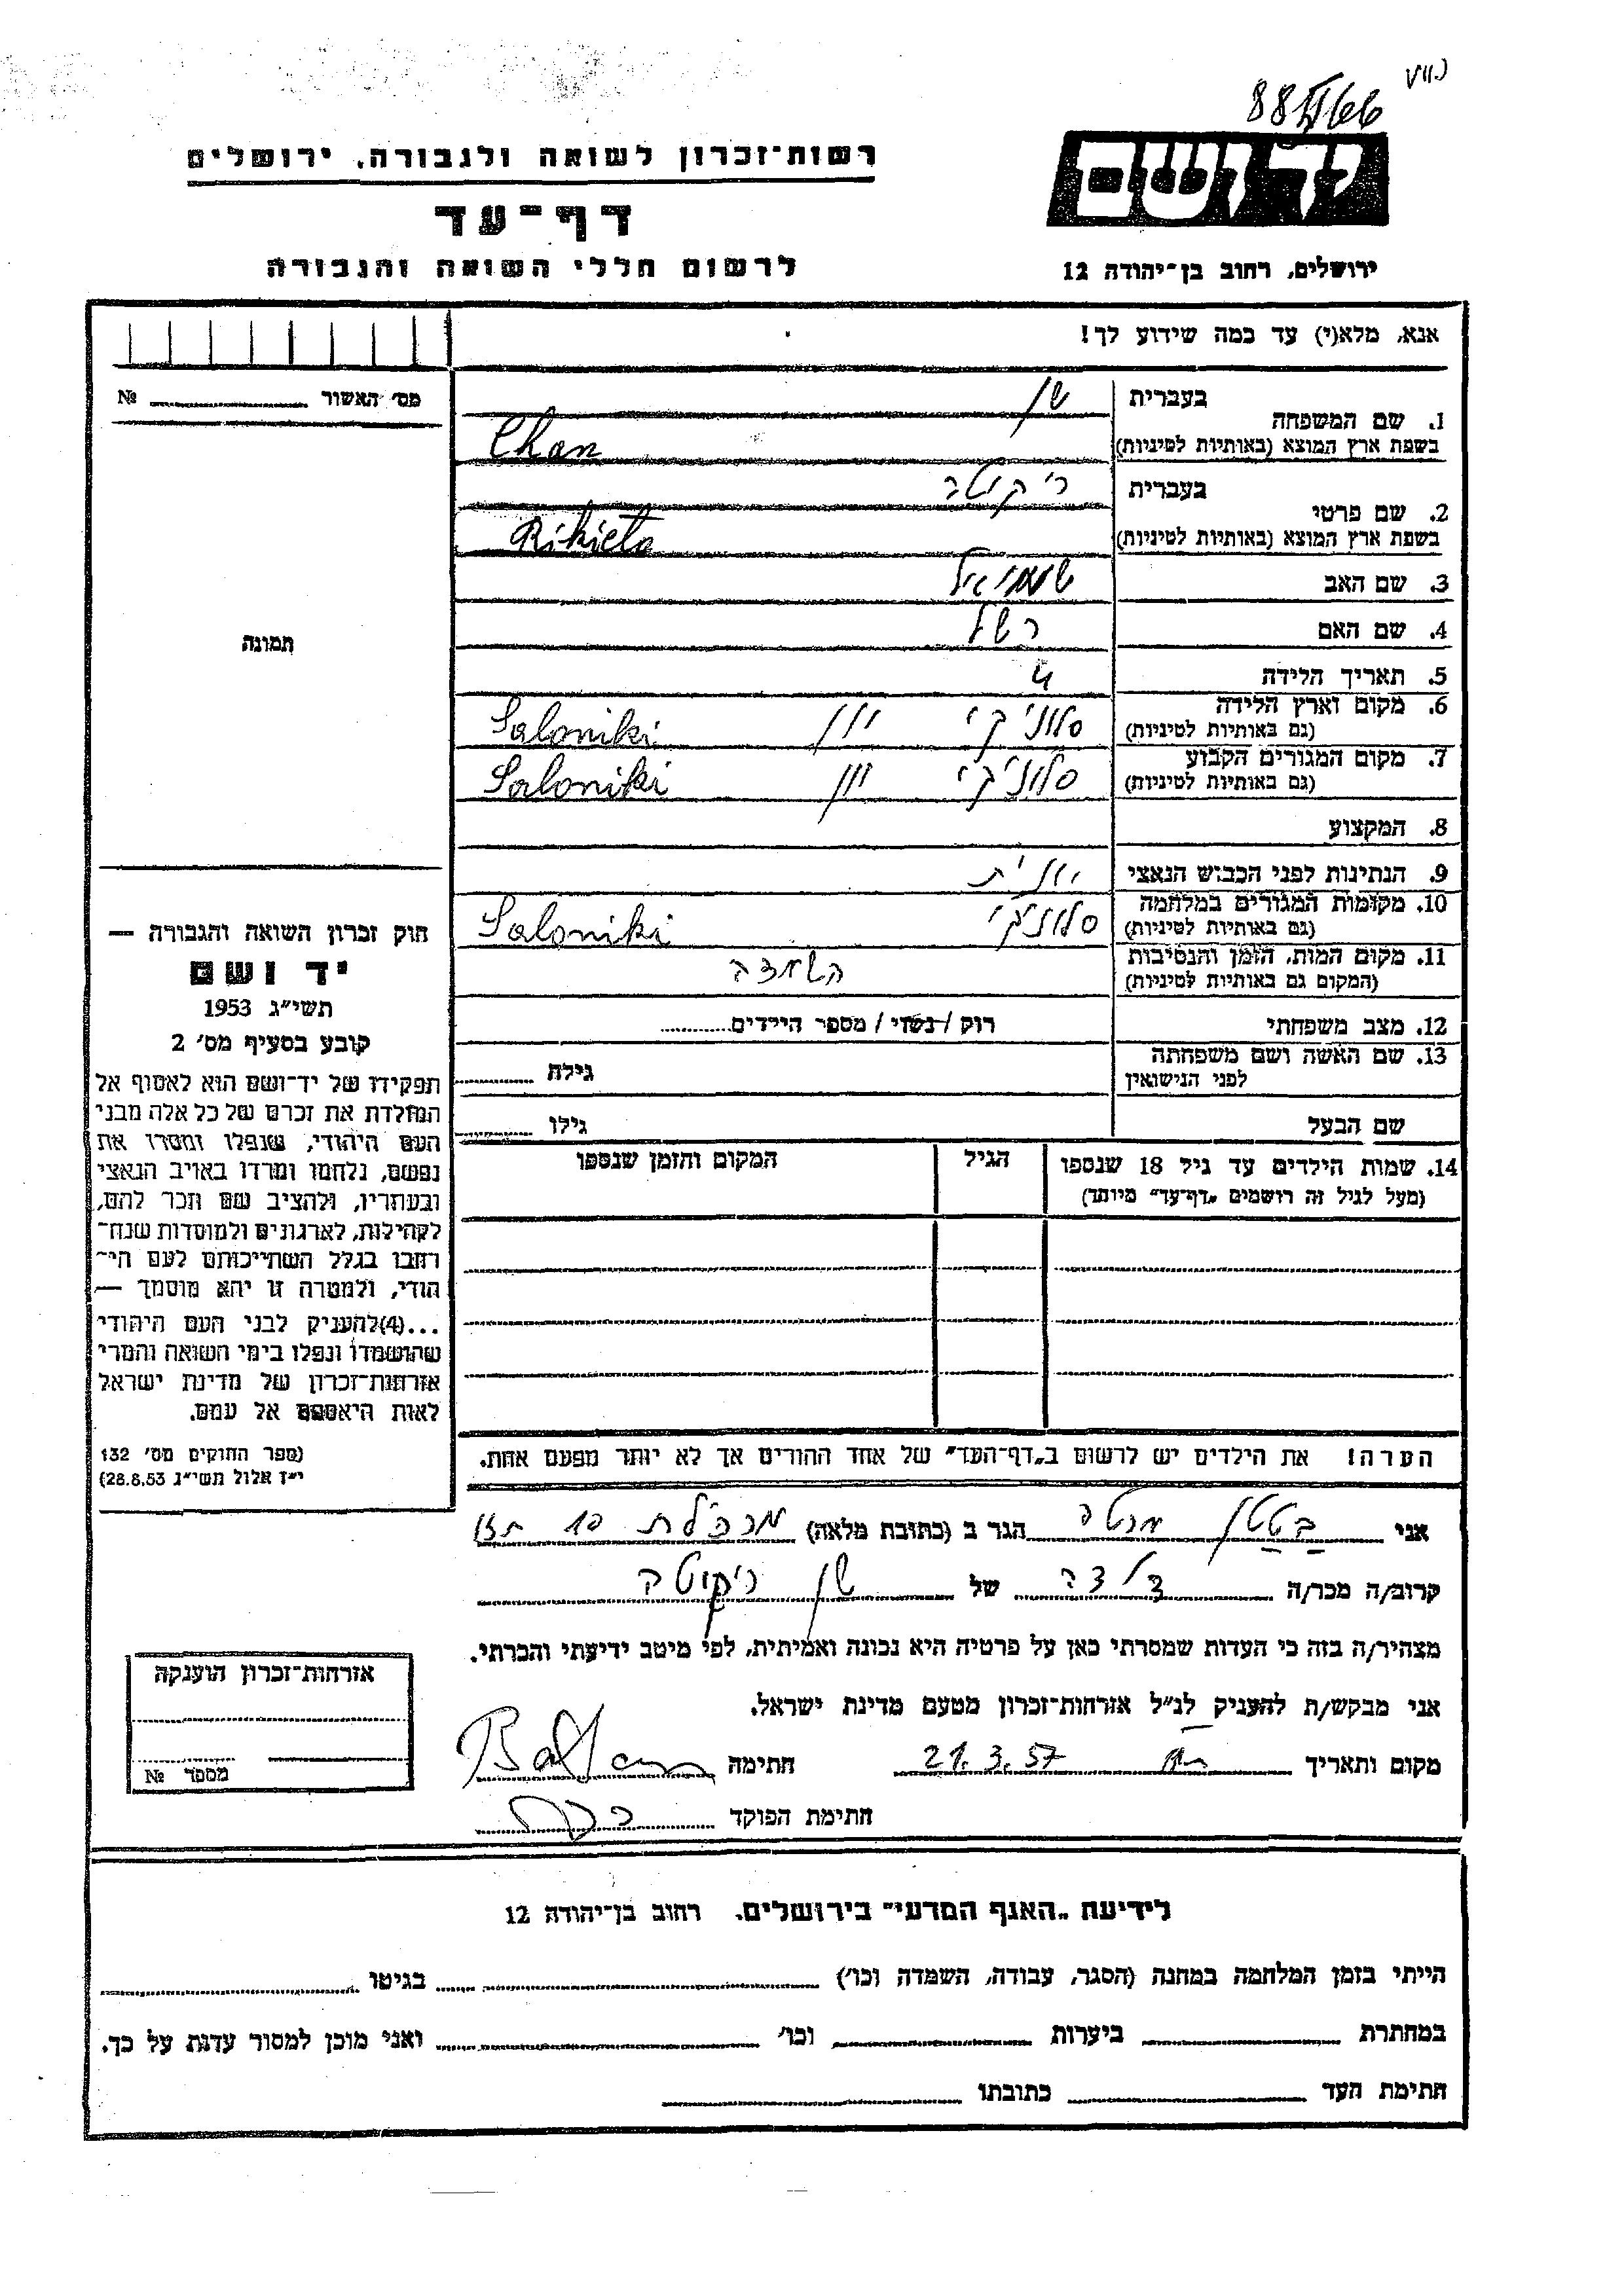 88 VI 66
רשות-זכרון לשואה ולגבורה, ירושלים
יד ושם
דף-עד
לרשום חללי השואה והגבורה
ירושלים, רחוב בן-יהודה 12
אנא, מלא(י) עד כמה שידוע לך!
מס׳ האשור № 
1. שם המשפחה
בעברית
בשפת ארץ המוצא (באותיות לטיניות) Chan
2. שם פרטי
בעברית ריקטה
בשפת ארץ המוצא (באותיות לטיניות) Rikieta
3. שם האב שמואל
4. שם האם רשל
5. תאריך הלידה 4
6. מקום וארץ הלידה סלוניקי יון Saloniki
(גם באותיות לטיניות)
7. מקום המגורים הקבוע סלוניקי יון Saloniki
(גם באותיות לטיניות)
8. המקצוע
9. הנתינות לפני הכבוש הנאצי יונית
10. מקומות המגורים במלחמה סלוניקי Saloniki
(גם באותיות לטיניות)
11. מקום המות, הזמן והנסיבות השמדה
(המקום גם באותיות לטיניות)
12. מצב משפחתי רוק / נשוי / מספר הילדים
13. שם האשה ושם משפחתה
לפני הנישואין גילה
שם הבעל גילו
14. שמות הילדים עד גיל 18 שנספו הגיל המקום והזמן שנספו
(מעל לגיל זה רושמים „דף-עד” מיוחד)
הערה! את הילדים יש לרשום ב„דף-העד” של אחד ההורים אך לא יותר מפעם אחת.
תמונה
חוק זכרון השואה והגבורה —
יד ושם
תשי״ג 1953
קובע בסעיף מס׳ 2
תפקידו של יד-ושם הוא לאסוף אל
המולדת את זכרם של כל אלה מבני
העם היהודי, שנפלו ומסרו את
נפשם, נלחמו ומרדו באויב הנאצי
ובעוזריו, ולהציב שם וזכר להם,
לקהילות, לארגונים ולמוסדות שנח־
רבו בגלל השתייכותם לעם הי־
הודי, ולמטרה זו יהא מוסמך —
...(4) להעניק לבני העם היהודי
שהושמדו ונפלו בימי השואה והמרי
אזרחות-זכרון של מדינת ישראל
לאות היאספם אל עמם.
(ספר החוקים מס׳ 132
י״ז אלול תשי״ג 28.8.53)
אני בטן הגר ב (כתובת מלאה)
קרוב/ה מכר/ה של ריקטה
מצהיר/ה בזה כי העדות שמסרתי כאן על פרטיה היא נכונה ואמיתית, לפי מיטב ידיעתי והכרתי.
אני מבקש/ת להעניק לנ״ל אזרחות-זכרון מטעם מדינת ישראל.
מקום ותאריך 21.3.57 חתימה
חתימת הפוקד
אזרחות-זכרון הוענקה
מספר №
לידיעת „האגף המדעי” בירושלים, רחוב בן-יהודה 12
הייתי בזמן המלחמה במחנה (הסגר, עבודה, השמדה וכו׳) בגיטו
במחתרת ביערות וכו׳ ואני מוכן למסור עדות על כך.
חתימת העד כתובתו